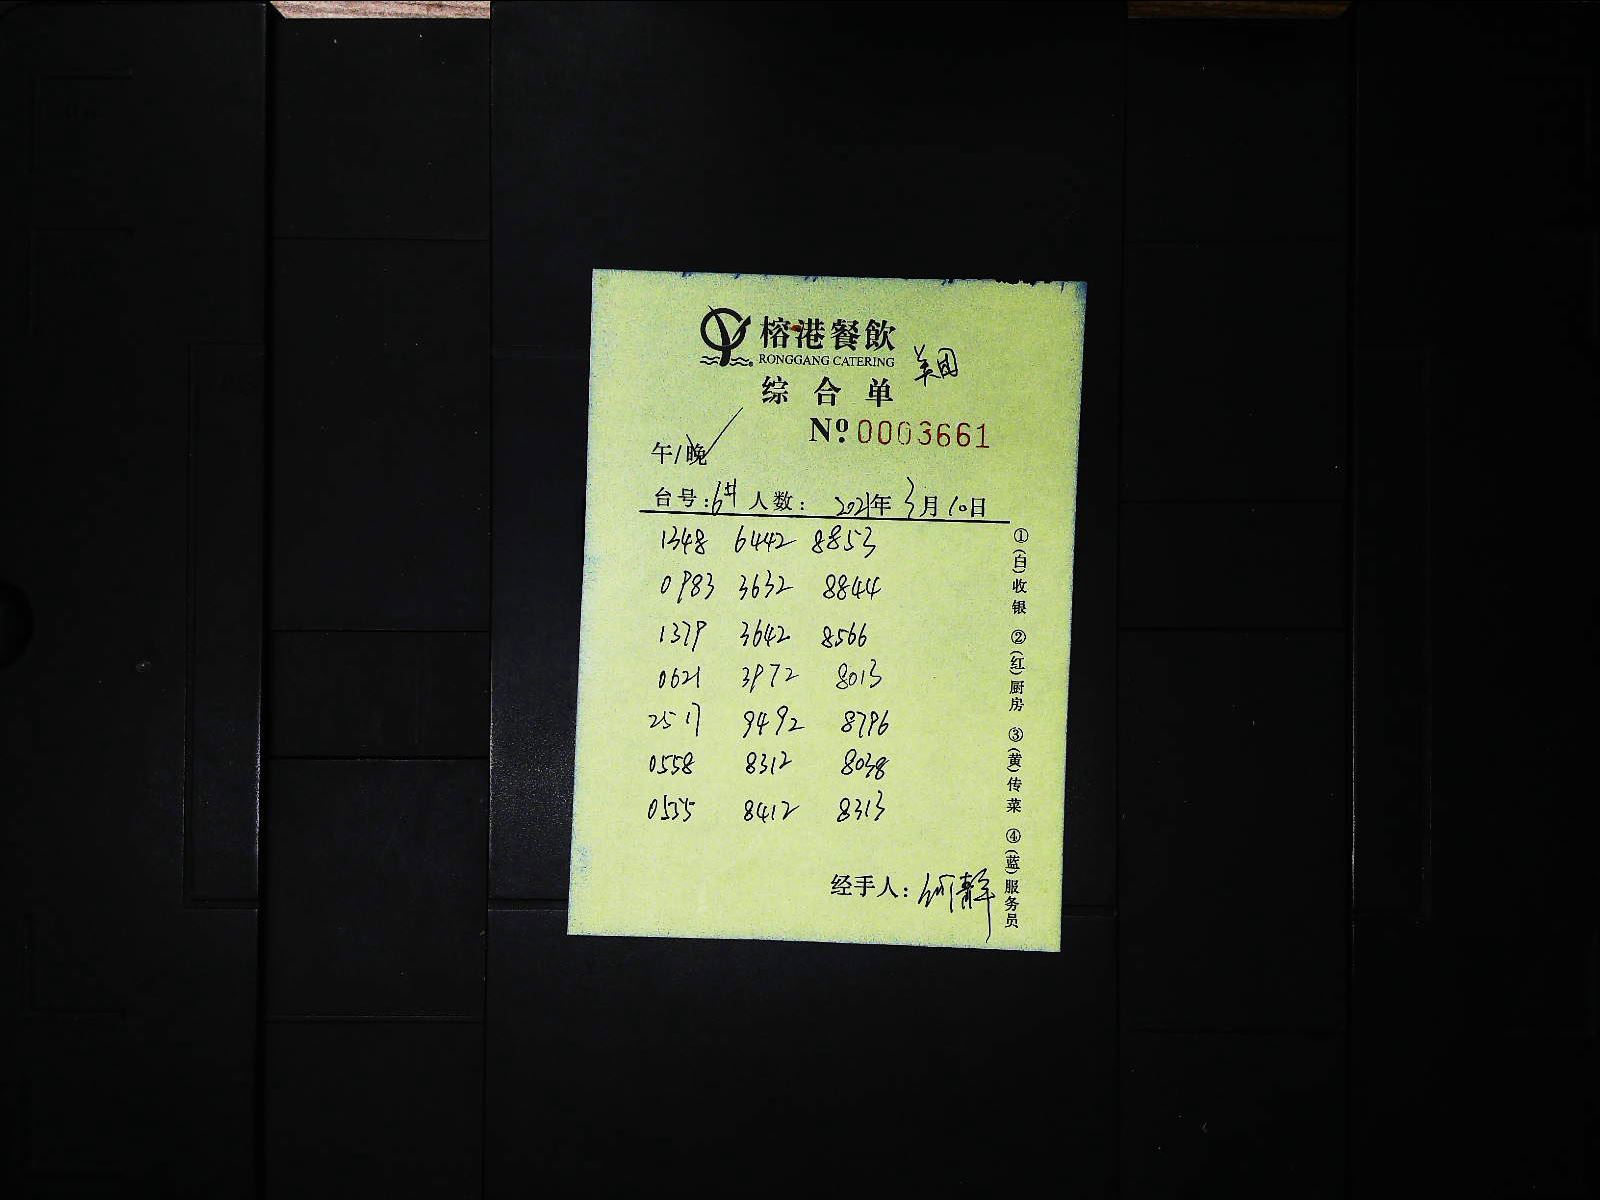 榕港餐飲
RONGGANG CATERING
美团
综合单
Nº 0003661
午/晚
台号:6# 人数: 2021年3月10日
1348 6442 8853
0983 3632 8844
1379 3642 8566
0621 3972 8013
2517 9492 8796
0558 8312 8038
0555 8412 8313
经手人:何静
①(白)收银 ②(红)厨房 ③(黄)传菜 ④(蓝)服务员